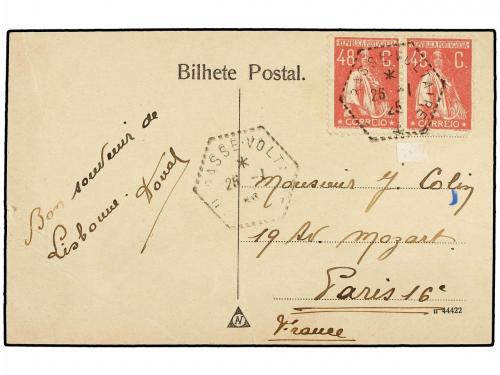 REPUBLICA PORTUGUESA REPUBLICA PORTUGUESA
48 C. 48 C.
CORREIO CORREIO
Bilhete Postal.
26
25
Bon souvenir de
Lisbonne.
26
Monsieur J. Colin
19 Av. Mozart
Paris 16e
France
11 44422